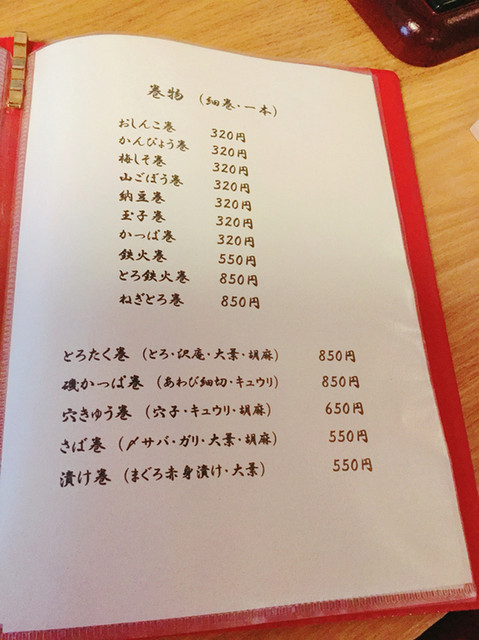 巻物 (細巻・一本)
おしんこ巻 320円
かんぴょう巻 320円
梅しそ巻 320円
山ごぼう巻 320円
納豆巻 320円
玉子巻 320円
かっぱ巻 320円
鉄火巻 550円
とろ鉄火巻 850円
ねぎとろ巻 850円
とろたく巻 (とろ・沢庵・大葉・胡麻) 850円
磯かっぱ巻 (あわび細切・キュウリ) 850円
穴きゅう巻 (穴子・キュウリ・胡麻) 650円
さば巻 (〆サバ・ガリ・大葉・胡麻) 550円
漬け巻 (まぐろ赤身漬け・大葉) 550円